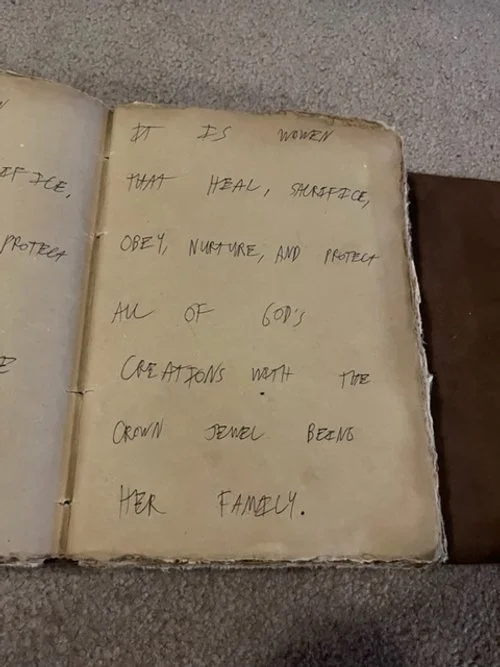 IFICE,
PROTECT
IT IS WOMEN
THAT HEAL, SACRIFICE,
OBEY, NURTURE, AND PROTECT
ALL OF GOD'S
CREATIONS WITH THE
CROWN JEWEL BEING
HER FAMILY.